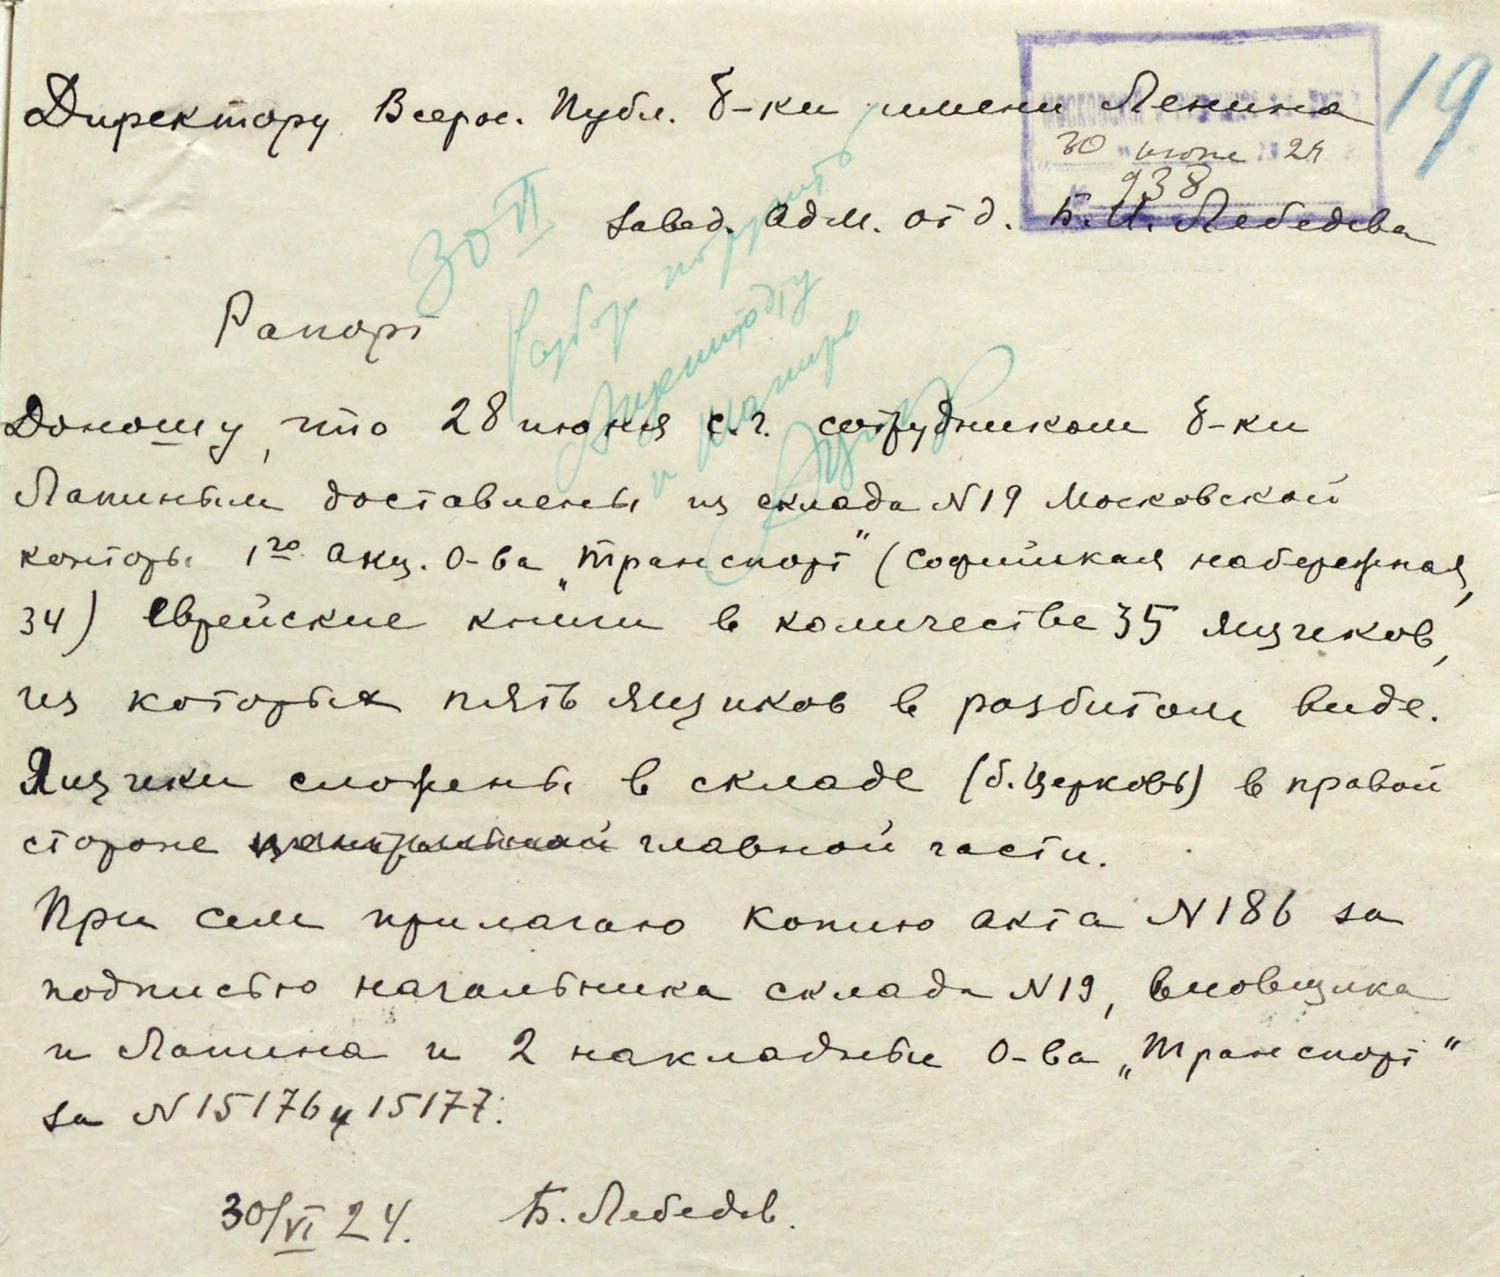 19
Директору Всерос. Публ. б-ки имени Ленина
30 июня 24
938
Завед. Адм. отд. Б. И. Лебедева
30 VI
Разбор поручить
и Шапиро
Рапорт
Доношу, что 28 июня с.г. сотрудником б-ки
Лапиным доставлены из склада N19 Московской
конторы 1го акц. О-ва „Транспорт" (Софийская набережная,
34) еврейские книги в количестве 35 ящиков,
из которых пять ящиков в разбитом виде.
Ящики сложены в складе (б. церковь) в правой
стороне центральной главной части.
При сем прилагаю копию акта N186 за
подписью начальника склада N19, весовщика
и Лапина и 2 накладные О-ва „Транспорт"
за N15176 и 15177.
30/VI 24. Б. Лебедев.